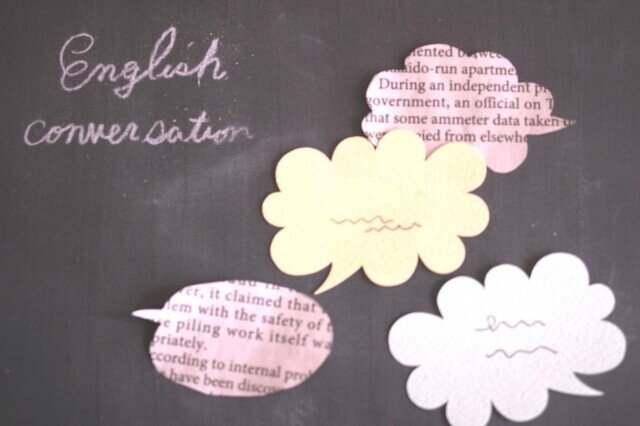 English
conversation
ented between
aido-run apartmen
During an independent p
government, an official on T
that some ammeter data taken
were ied from elsewhe
er, it claimed that
em with the safety of t
e piling work itself wa
priately.
ccording to internal pro
have been discov